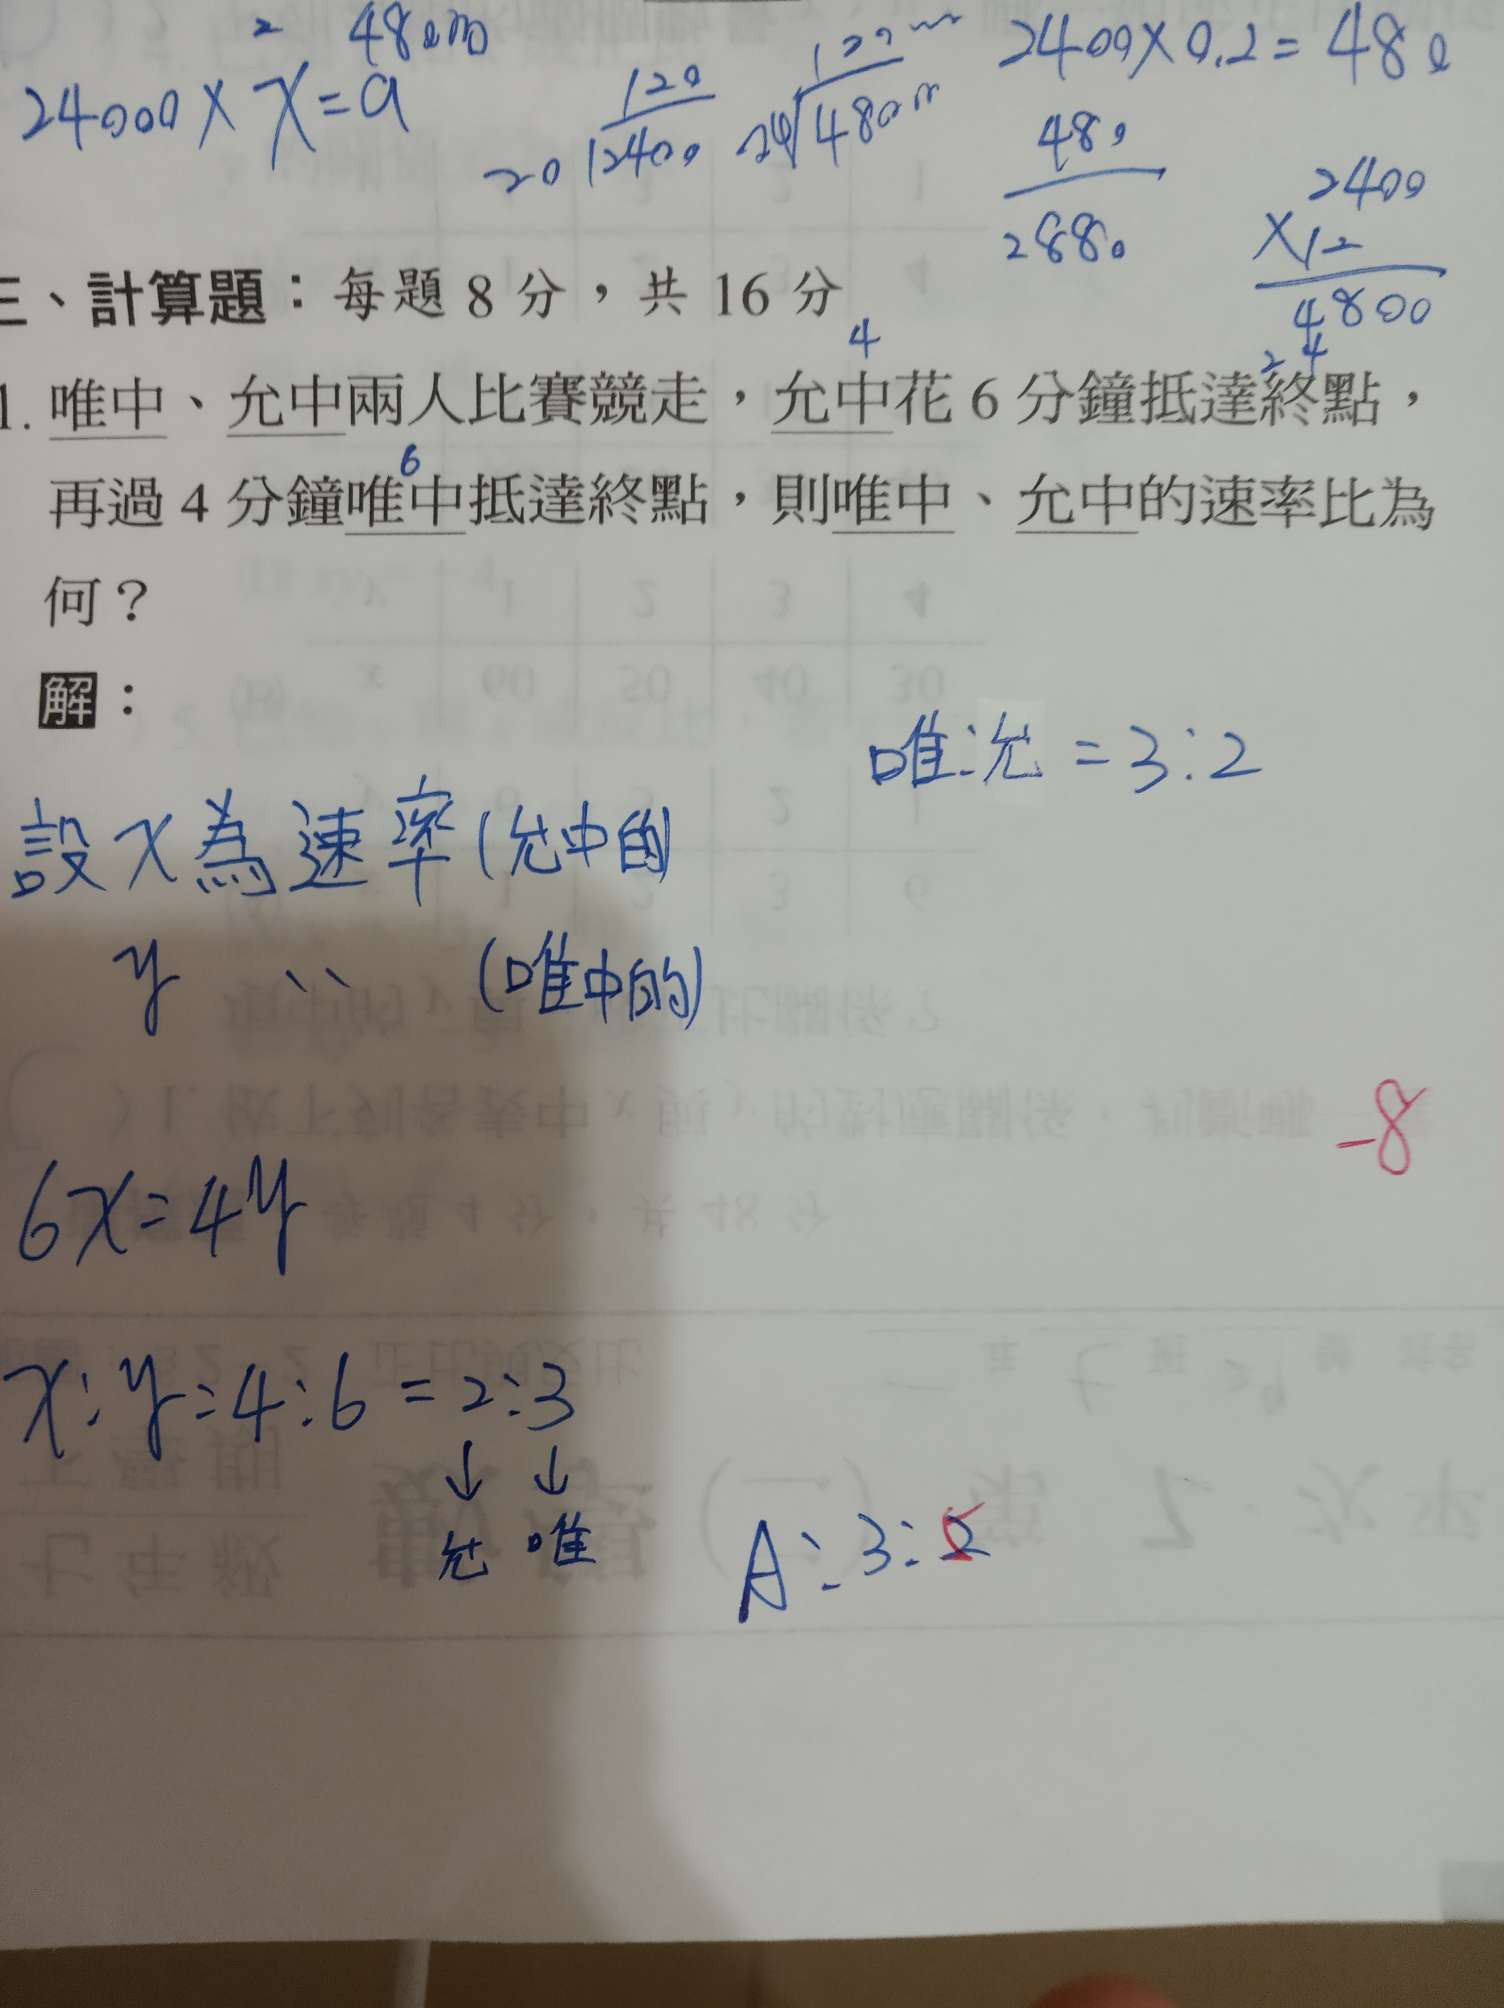 2 48cm
24000×x=a
120
20 2400
24 480m
2400×0.2=480
480
2880
2400
×12
4800
24
三、計算題：每題 8 分，共 16 分
4
1. 唯中、允中兩人比賽競走，允中花 6 分鐘抵達終點，
6
再過 4 分鐘唯中抵達終點，則唯中、允中的速率比為
何？
解：
唯:允=3:2
設x為速率(允中的
y 〃 (唯中的)
-8
6x=4y
x:y=4:6=2:3
↓ ↓
允 唯
A:3:2